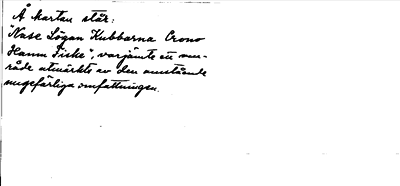 Å kartan står:
"Nase Lågan Kubbarna Orono
Hamn Fiske", varjämte ett om-
råde utmärkts av den omstående
ungefärliga omfattningen.